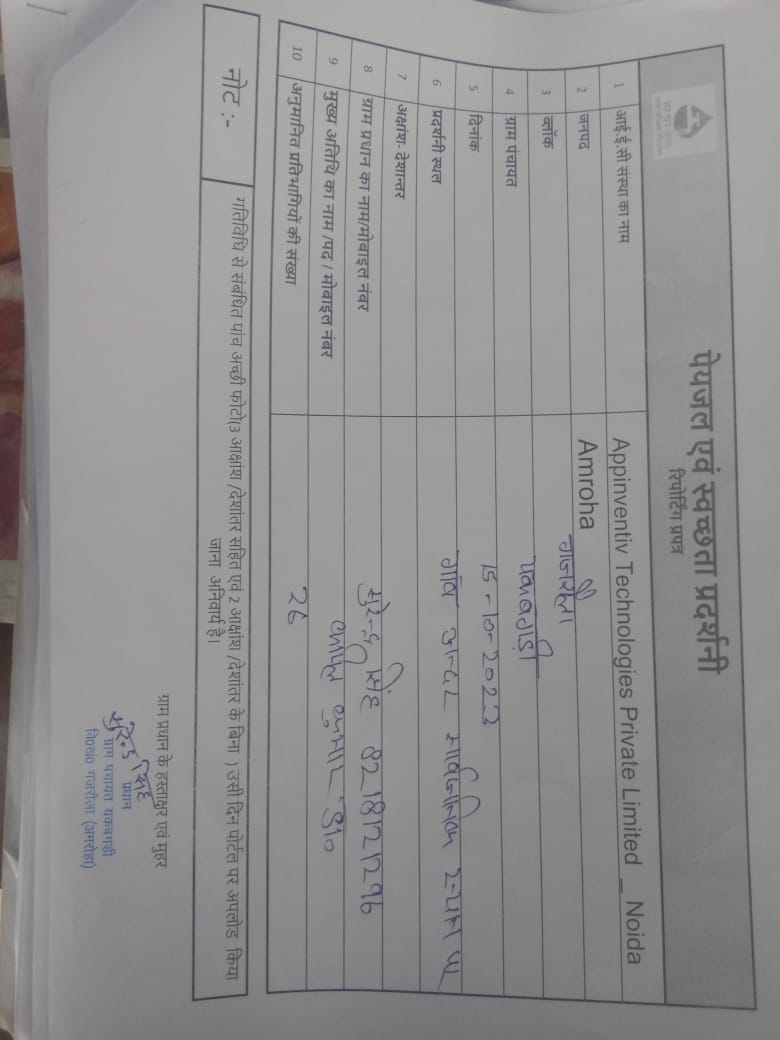 पेयजल एवं स्वच्छता प्रदर्शनी
रिपोर्टिंग प्रपत्र
1 आई.ई.सी संस्था का नाम Appinventiv Technologies Private Limited _ Noida
2 जनपद Amroha
3 ब्लॉक गजरौला
4 ग्राम पंचायत चकबगड़ी
5 दिनांक 15-10-2023
6 प्रदर्शनी स्थल गाँव अन्दर सार्वजनिक स्थल पर
7 अक्षांश- देशान्तर
8 ग्राम प्रधान का नाम/मोबाइल नंबर सुरेन्द्र सिंह 8218121296
9 मुख्य अतिथि का नाम /पद / मोबाइल नंबर कुमार
10 अनुमानित प्रतिभागियों की संख्या 26
नोट :-
गतिविधि से संबंधित पांच अच्छी फोटो(3 आक्षांश /देशांतर सहित एवं 2 आक्षांश /देशांतर के बिना ) उसी दिन पोर्टल पर अपलोड किया
जाना अनिवार्य है।
ग्राम प्रधान के हस्ताक्षर एवं मुहर
सुरेन्द्र सिंह
प्रधान
ग्राम पंचायत चकबगड़ी
वि०ख० गजरौला (अमरोहा)